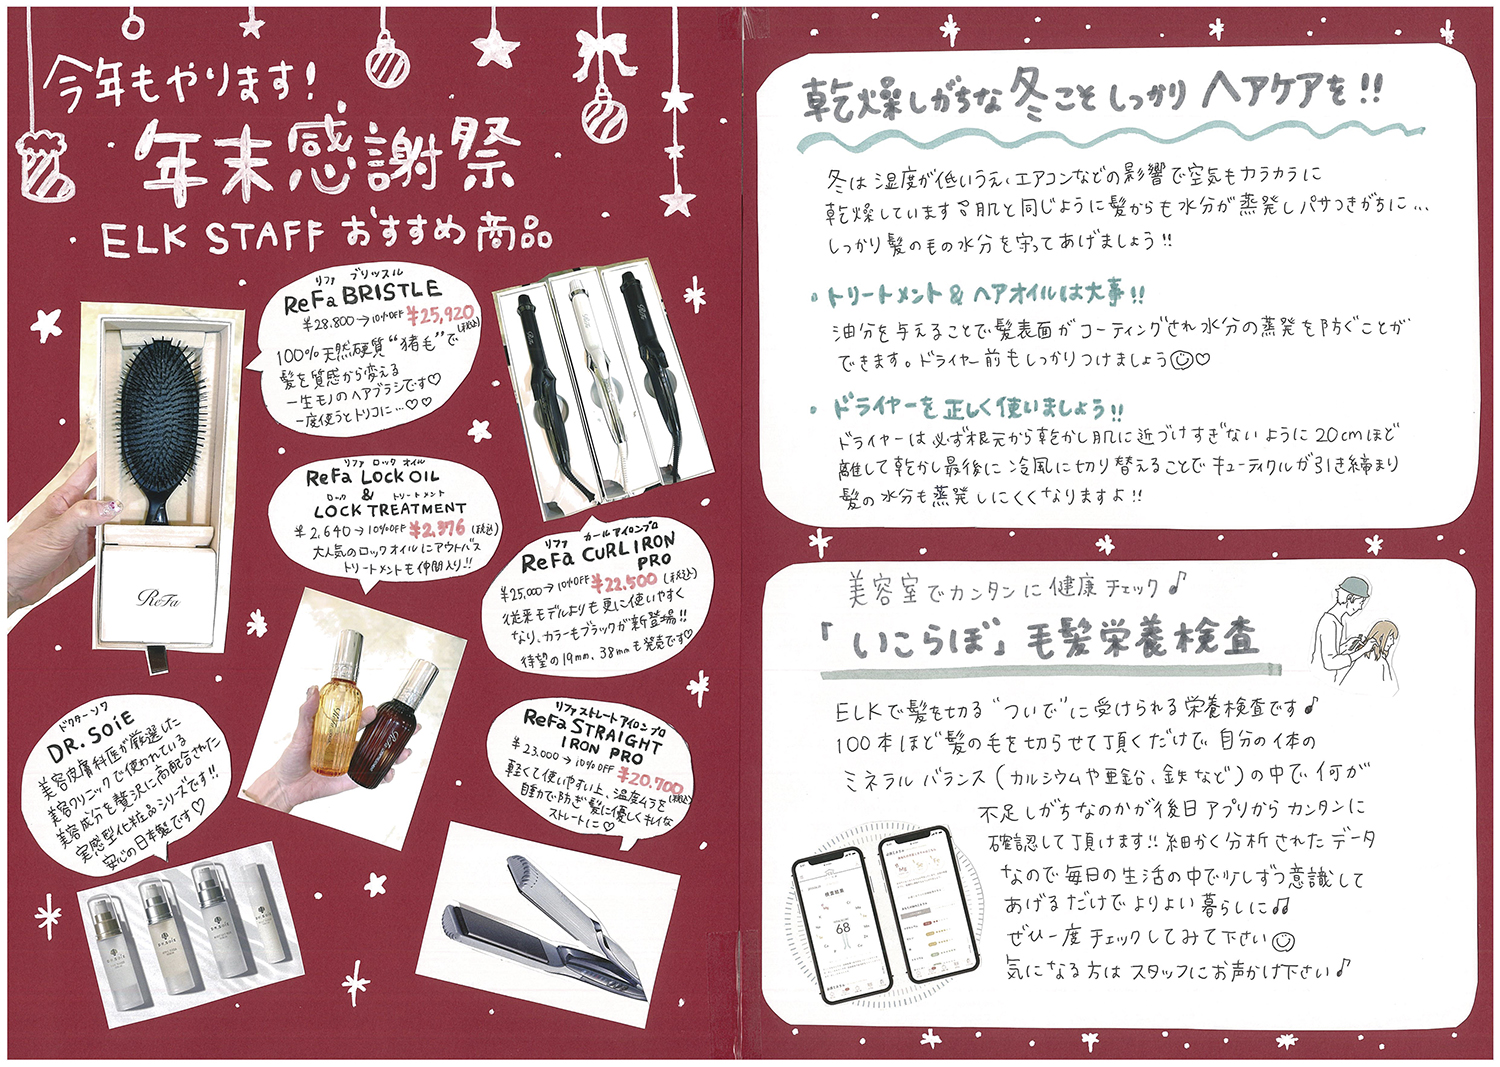 今年もやります！
年末感謝祭
ELK STAFF おすすめ商品
リファ ブリッスル
ReFa BRISTLE
¥28.800→10%OFF ¥25,920(税込)
100%天然硬質"猪毛"で
髪を質感から変える
一生モノのヘアブラシです♡
一度使うとトリコに…♡♡
ReFa
リファ ロック オイル
ReFa LOCK OIL
&
ロック トリートメント
LOCK TREATMENT
¥2,640→10%OFF ¥2,376(税込)
大人気のロックオイルにアウトバス
トリートメントも仲間入り!!
リファ カールアイロンプロ
ReFa CURL IRON
PRO
¥25,000→10%OFF ¥22,500(税込)
従来モデルよりも更に使いやすく
なり、カラーもブラックが新登場!!
待望の19mm、38mmも発売です♡
ドクターソワ
DR.SOiE
美容皮膚科医が厳選した
美容クリニックで使われている
美容成分を贅沢に高配合された
実感型化粧品シリーズです!!
安心の日本製です♡
リファストレートアイロンプロ
ReFa STRAIGHT
IRON PRO
¥23,000→10%OFF ¥20,700(税込)
軽くて使いやすい上、温度ムラを
自動で防ぎ髪に優しくキレイな
ストレートに♡
DR.SOiE
DR.SOiE
DR.SOiE
DR.SOiE
乾燥しがちな冬こそしっかりヘアケアを!!
冬は湿度が低いうえ、エアコンなどの影響で空気もカラカラに
乾燥しています。肌と同じように髪からも水分が蒸発しパサつきがちに…
しっかり髪のもの水分を守ってあげましょう!!
・トリートメント&ヘアオイルは大事!!
油分を与えることで髪表面がコーティングされ水分の蒸発を防ぐことが
できます。ドライヤー前もしっかりつけましょう☺♡
・ドライヤーを正しく使いましょう!!
ドライヤーは必ず根元から乾かし肌に近づけすぎないように20cmほど
離して乾かし最後に冷風に切り替えることでキューティクルが引き締まり
髪の水分も蒸発しにくくなりますよ!!
美容室でカンタンに健康チェック♪
「いこらぼ」毛髪栄養検査
ELKで髪を切る"ついで"に受けられる栄養検査です♪
100本ほど髪の毛を切らせて頂くだけで自分の体の
ミネラルバランス(カルシウムや亜鉛、鉄など)の中で何が
不足しがちなのかが後日アプリからカンタンに
確認して頂けます!!細かく分析されたデータ
なので毎日の生活の中で少しずつ意識して
あげるだけでよりよい暮らしに♫
ぜひ一度チェックしてみて下さい☺
気になる方はスタッフにお声かけ下さい♪
検査結果
68